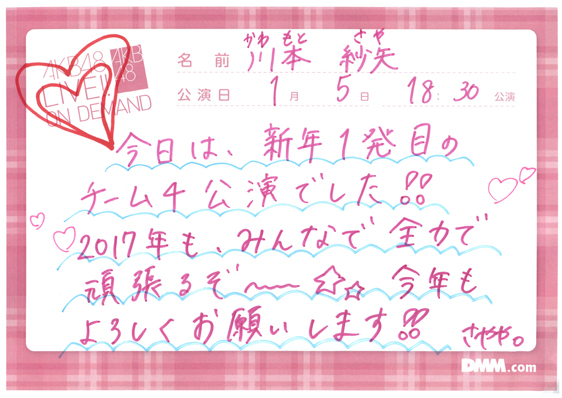 AKB48
LIVE!!
ON DEMAND
AKB
48
かわもと さや
名前 川本 紗矢
公演日 1月 5日 18:30 公演
今日は、新年1発目の
チーム4公演でした!!
2017年も、みんなで全力で
頑張るぞ〜〜☆☆ 今年も
よろしくお願いします!! さやや。
DMM.com